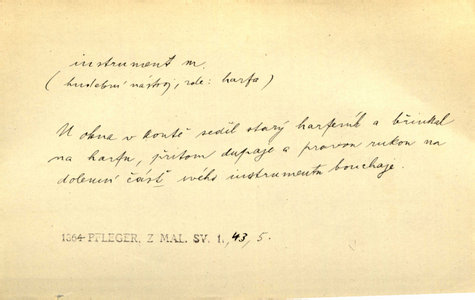 instrument m.
(hudební nástroj, zde: harfa)
U okna v koutě seděl starý harfeník a břinkal
na harfu, přitom dupaje a pravou rukou na
dolenní část svého instrumentu bouchaje.
1864 PFLEGER, Z MAL. SV. 1., 43, 5.